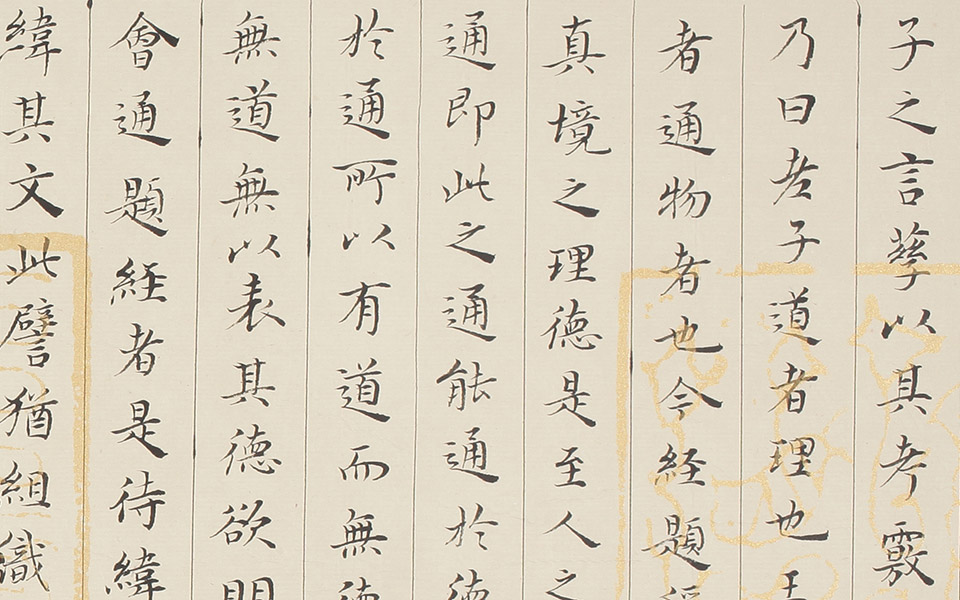 子之言孳以其孝覈
乃曰老子道者理也王
者通物者也今経題
真境之理徳是至人之
通即此之通能通於徳
於通所以有道而無徳
無道無以表其徳欲明
會通題経者是待緯
緯其文此譬猶組織